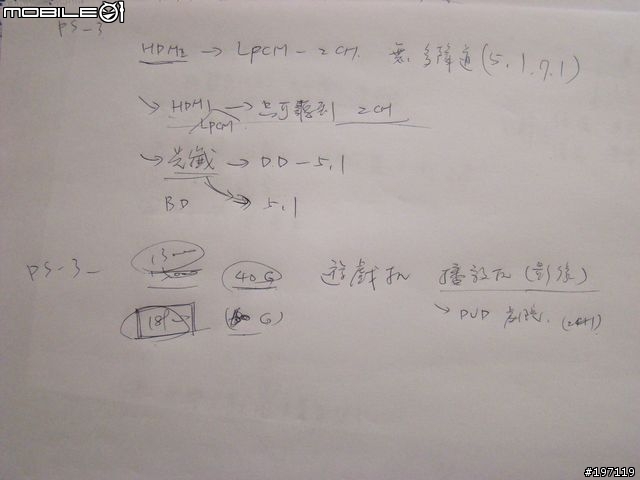 MOBILE01
PS-3
HDMI → LPCM - 2CH. 無多聲道(5.1.7.1)
↘ HDMI → 只可聽到 2CH
LPCM
→ 光纖 → DD - 5.1
BD → 5.1
PS-3- 13000 40G 遊戲機 播放機(影像)
G) ↘ DVD 劇院. (2CH)
#197119